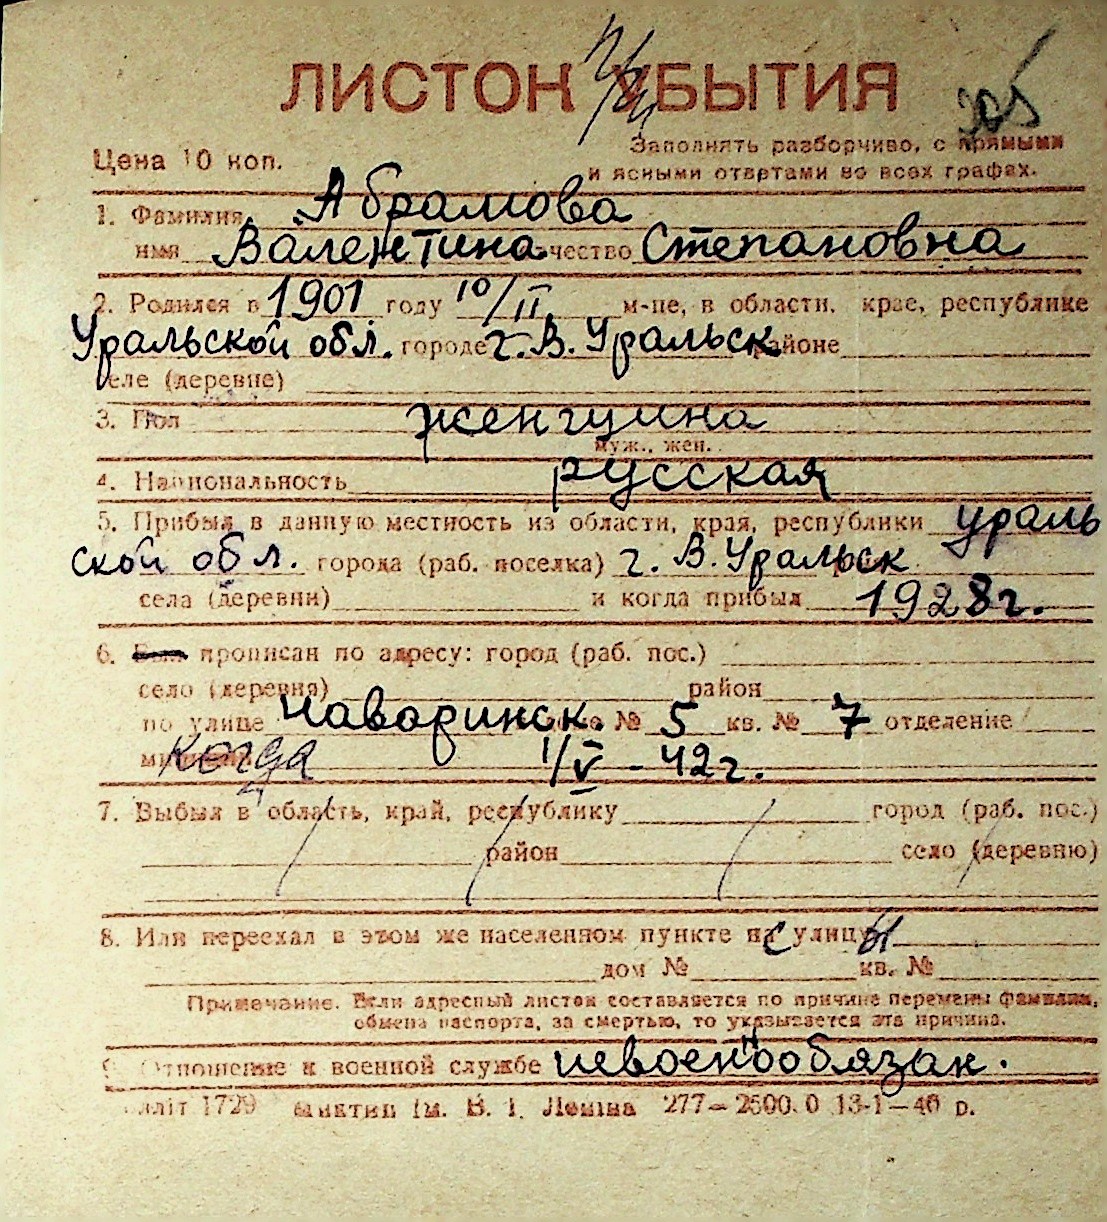 ЛИСТОК УБЫТИЯ
Цена 10 коп.
Заполнять разборчиво, с прямыми
и ясными ответами во всех графах.
1. Фамилия Абрамова
имя Валентина отчество Степановна
2. Родился в 1901 году 10/II м-це, в области, крае, республике
Уральской обл. городе г. В. Уральск районе
селе (деревне)
3. Пол женщина
муж., жен.
4. Национальность русская
5. Прибыл в данную местность из области, края, республики ураль
ской обл. города (раб. поселка) г. В. Уральск
села (деревни) и когда прибыл 1928 г.
6. прописан по адресу: город (раб. пос.)
село (деревня) район
по улице Наваринск. № 5 кв. № 7 отделение
когда 1/V - 42 г.
7. Выбыл в область, край, республику город (раб. пос.)
район село (деревню)
8. Или переехал в этом же населенном пункте с улицы
дом № кв. №
Примечание. Если адресный листок составляется по причине перемены фамилии,
обмена паспорта, за смертью, то указывается эта причина.
9. Отношение к военной службе невоеннообязан.
1729 ім. В. І. Леніна 277—2500.0 13-1—40 р.